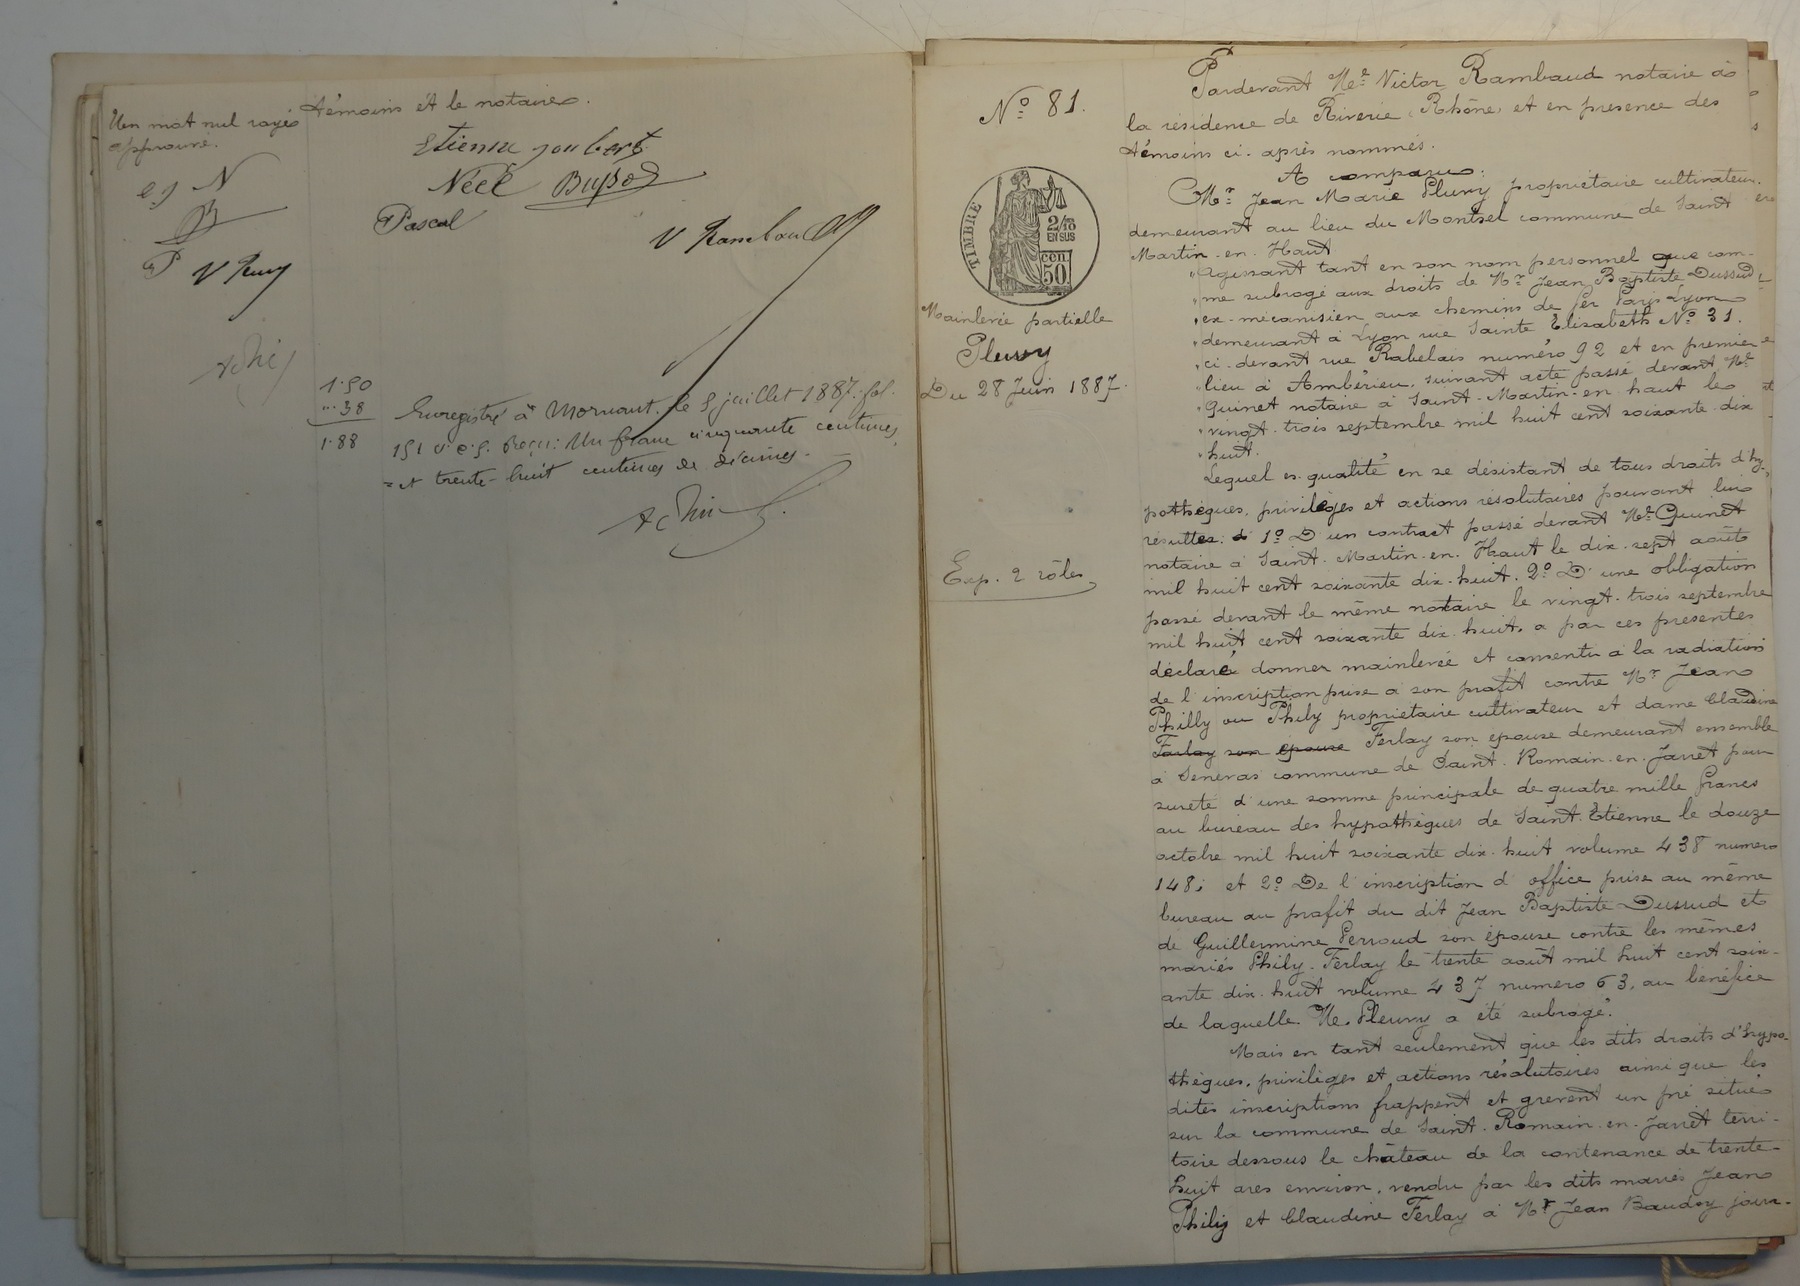 témoins et le notaire.
Un mot nul rayé
approuvé.
Etienne Joubert
Néel Bussod
Pascal
V Rambaud
e J N
B
P V R
1.50
" 38
1.88
Enregistré à Mornant, le 5 juillet 1887. fol.
151 v. c. 5. Reçu: Un franc cinquante centimes,
et trente-huit centimes de décimes.
N° 81.
TIMBRE
2/10
EN SUS
cen.
50.
Mainlevée partielle
Pleuvy
Du 28 Juin 1887.
Exp. 2 rôles
Pardevant Me Victor Rambaud notaire à
la résidence de Riverie (Rhône) et en presence des
témoins ci-après nommés.
A comparu:
Mr Jean Marie Pleuvy propriétaire cultivateur
demeurant au lieu du Montsel commune de Saint
Martin-en-Haut
" Agissant tant en son nom personnel que com-
" me subrogé aux droits de Mr Jean Baptiste Dussud
" ex-mécanisien aux chemins de fer Paris-Lyon
" demeurant à Lyon rue Sainte Elizabeth N° 31.
" ci-devant rue Rabelais numéro 92 et en premier
" lieu à Ambérieu, suivant acte passé devant Me
" Guinet notaire à Saint-Martin-en-haut le
" vingt-trois septembre mil huit cent soixante-dix
" huit.
Lequel es-qualité en se désistant de tous droits d'hy-
pothèques, privilèges et actions résolutoires pouvant lui
résulter: 1° D'un contract passé devant Me Guinet
notaire à Saint-Martin-en-Haut le dix-sept août
mil huit cent soixante dix-huit. 2° D'une obligation
passé devant le même notaire le vingt-trois septembre
mil huit cent soixante dix-huit, a par ces présentes
déclaré donner mainlevée et consentu à la radiation
de l'inscription prise à son profit contre Mr Jean
Philly ou Phily propriétaire cultivateur et dame Claudine
Ferlay son épouse Ferlay son épouse demeurant ensemble
à Seneras commune de Saint-Romain-en-Jarret pour
sureté d'une somme principale de quatre mille francs
au bureau des hypothèques de Saint-Etienne le douze
octobre mil huit soixante dix-huit volume 438 numero
148; et 2° De l'inscription d'office prise au même
bureau au profit du dit Jean Baptiste Dussud et
de Guillermine Perroud son épouse contre les mêmes
mariés Phily-Ferlay le trente août mil huit cent soix-
ante dix-huit volume 437 numero 63, au bénéfice
de laquelle Me Pleuvy a été subrogé.
Mais en tant seulement que les dits droits d'hypo-
thèques, privilèges et actions résolutoires ainsi que les
dites inscriptions frappent et grèvent un pré situé
sur la commune de Saint-Romain-en-Jarret terri-
toire dessous le château de la contenance de trente-
huit ares environ, vendu par les dits mariés Jean
Phily et Claudine Ferlay à Mr Jean Baudoy jour-